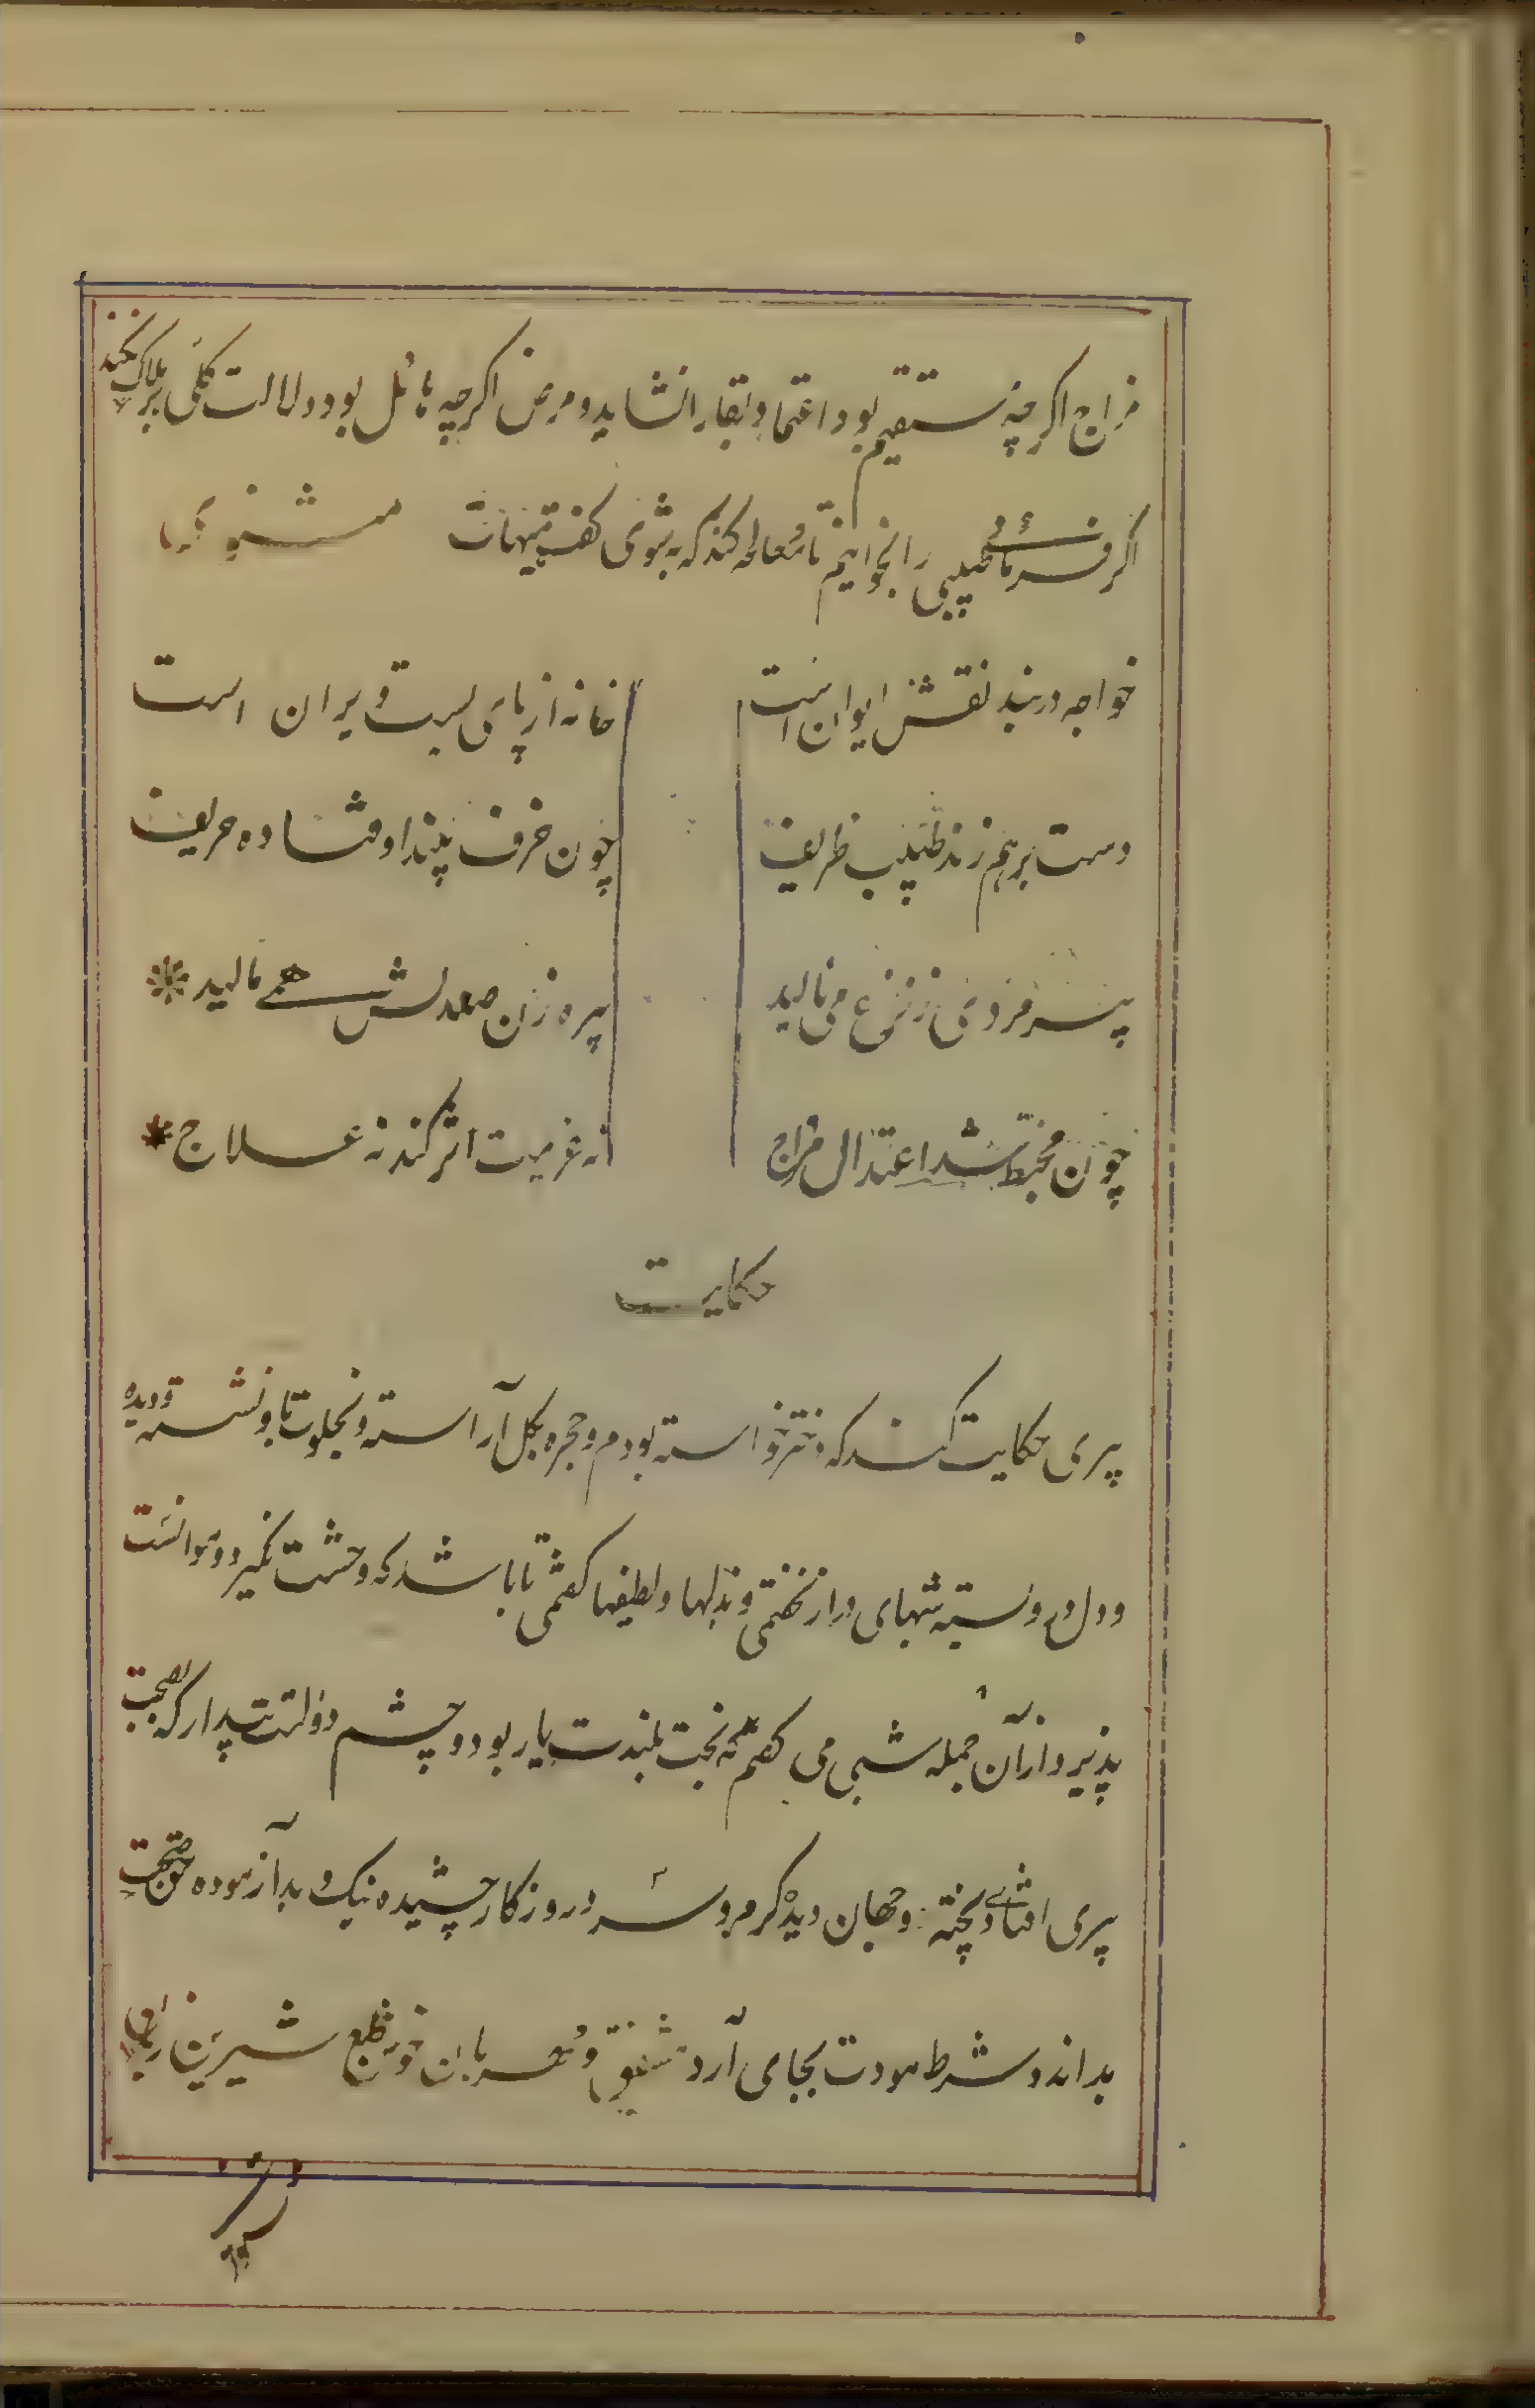 مزاج اکرچه مستقیم بود اعتماد بقا را نشاید و مرض اکرچه هائل بود دلالت کلی بر هلاک نکند
اکر فرمائے طبیبی را بخوانیم تا معالجه کند که به شوی کفت هیهات مثنوی
خواجه در بند نقش ایوان است خانه از پای بست ویران است
دست بر هم زند طبیب ظریف چون خرف بیند اوفتاده حریف
پیر مردی ز نزع می نالید پیره زن صندلش همے مالید
چون مخبط شد اعتدال مزاج نه عزیمت اثر کند نه علاج
حکایت
پیری حکایت کند که دختر خواسته بودم و حجره بکل آراسته و بخلوت با او نشسته و دیده
و دل در و بسته شبهای دراز نخفتمی و بذلها و لطیفها کفتمی تا باشد که وحشت نگیرد و موانست
پذیرد از آن جمله شبی می کفتم که بخت بلندت یار بود و چشم دولتت بیدار که بصحبت
پیری افتادے پخته و جهان دیده کرم و سرد روزکار چشیده نیک و بد آزموده حق صحبت
بداند و شرط مودت بجای آرد مشفق و مهربان خوش طبع شیرین زبان